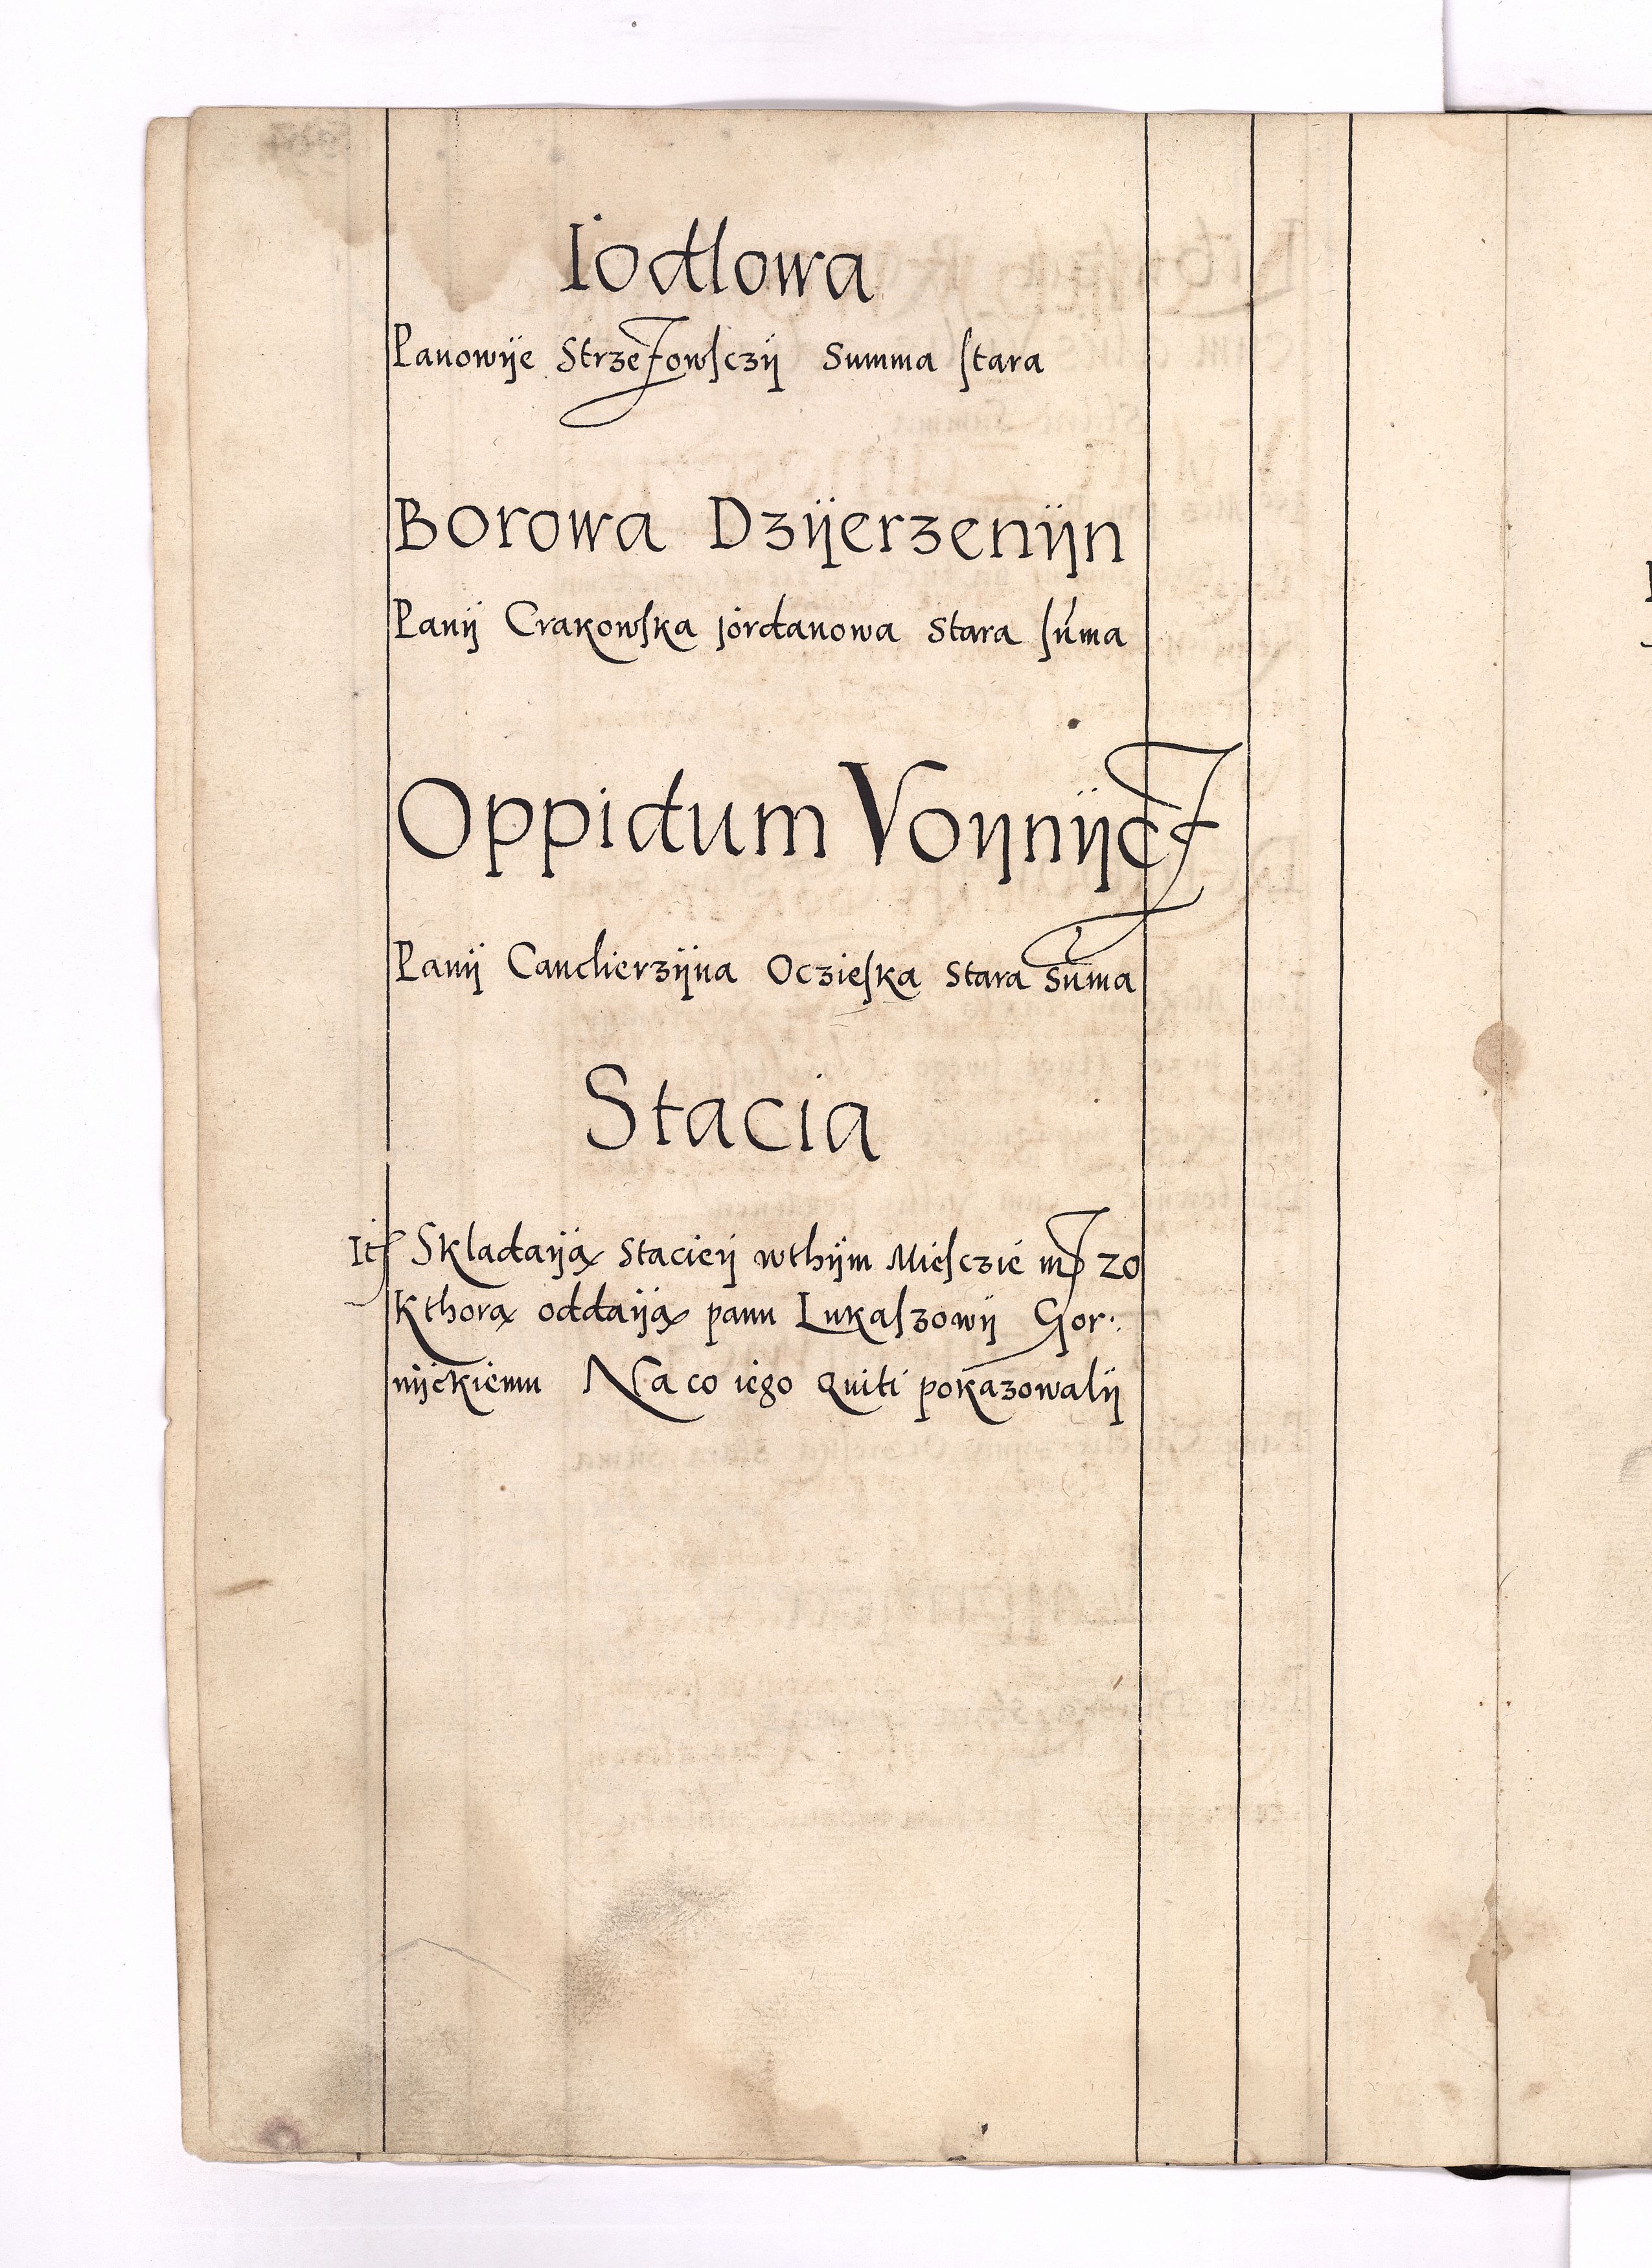 Iodlowa
Panowije Strzeżowsczij Summa stara
Borowa Dzijerzenijn
Panij Crakowska jordanowa Stara súma
Oppidum Voijnijcż
Panij Canclierzijna Oczieska Stara Sūma
Stacia
Skladaiją Stacieij wthijm Miesczie 20
Kthorą oddaiją panu Lukaszowij Gor:
nijckiemu Na co iego Quiti pokazowalij